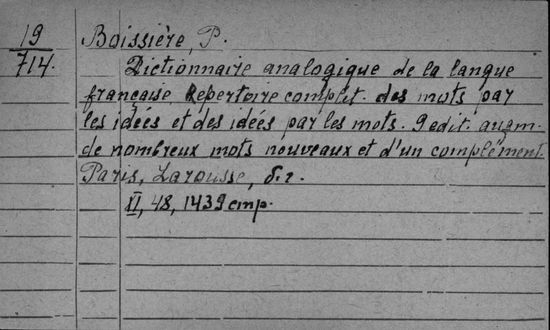 19
714.
Boissière, P.
Dictionnaire analogique de la langue
française. Repertoire complet des mots par
les idées et des idées par les mots. 9 edit. augm.
de nombreux mots nouveaux et d'un complément
Paris, Larousse, б.г.
XI, 48, 1439 стр.